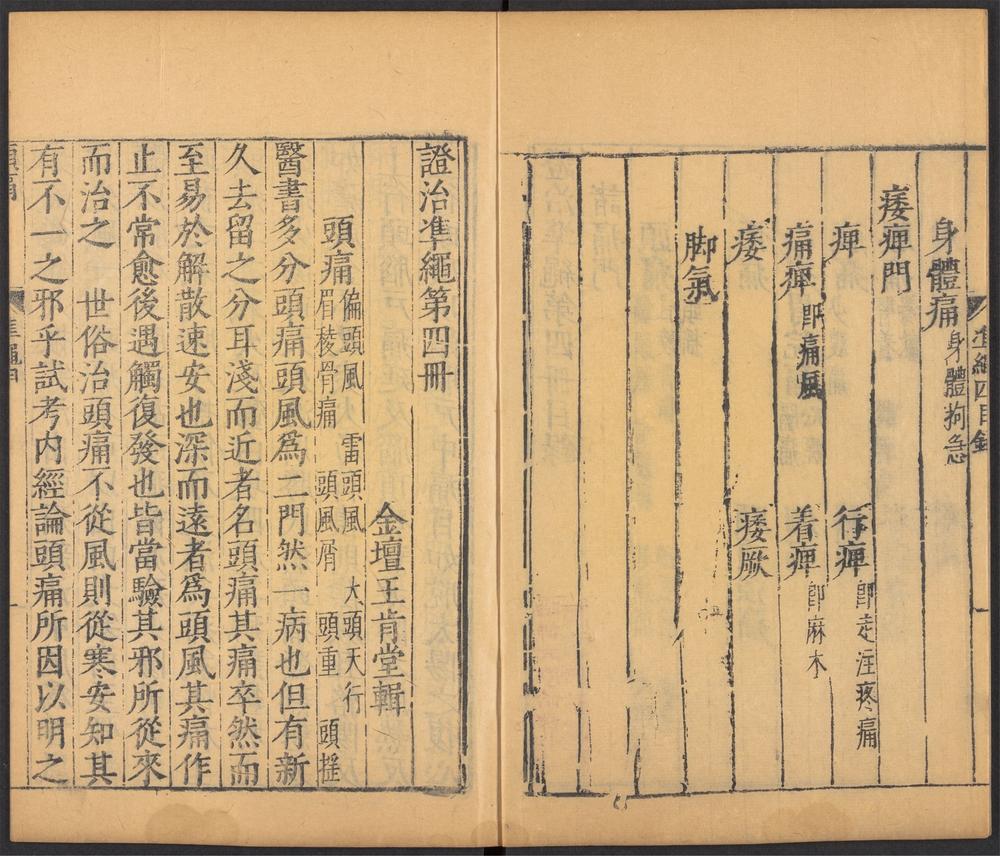 準繩四目錄
身體痛 身體拘急
痿痺門
痺 行痺 即走注疼痛
痛痺 即痛風 着痺 即麻木
痿 痿厥
脚氣
證治準繩第四冊
金壇王肯堂輯
頭痛 偏頭風 雷頭風 大頭天行
眉稜骨痛 頭風屑 頭重 頭搖
醫書多分頭痛頭風爲二門然一病也但有新
久去留之分耳淺而近者名頭痛其痛卒然而
至易於解散速安也深而遠者爲頭風其痛作
止不常愈後遇觸復發也皆當驗其邪所從來
而治之 世俗治頭痛不從風則從寒安知其
有不一之邪乎試考內經論頭痛所因以明之